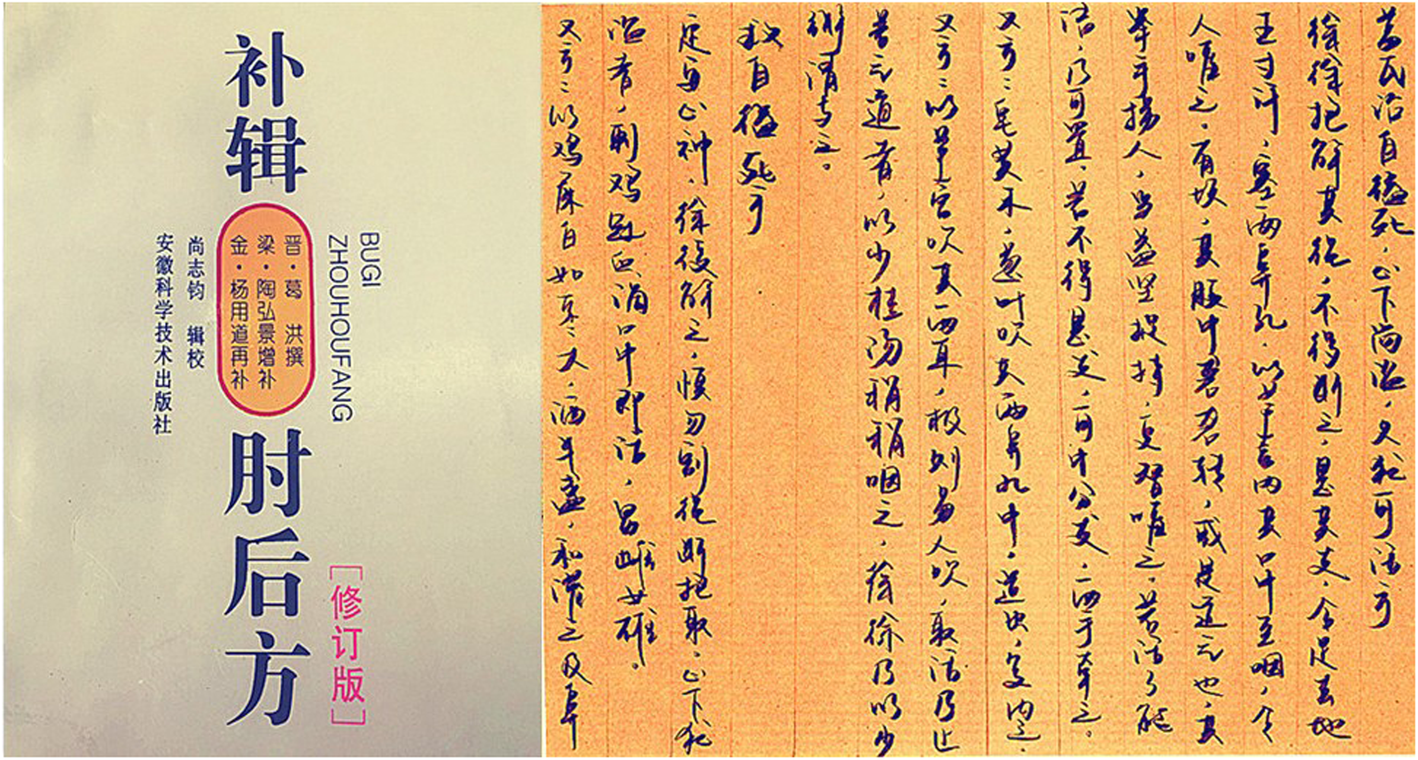 补辑肘后方
BUGI
ZHOUHOUFANG
[修订版]
晋·葛 洪撰
梁·陶弘景增补
金·杨用道再补
尚志钧 辑校
安徽科学技术出版社
葛氏治自缢死，心下尚温，久犹可活方
徐徐抱解其绳，不得断之，悬其发，令足去地
五寸许，塞两鼻孔，以芦管内其口中至咽，令
人嘘之，有顷，其腹中砻砻转，或是通气也，其
举手捞人，当益坚捉持，更替嘘之，若活了能
语，乃可置，若不得悬发，可中分发，两手牵之。
又方：皂荚末，葱叶吹其两鼻孔中，逆出，复内之。
又方：以芦管吹其两耳，极则易人吹，取活乃止
若气通者，以少桂汤稍稍咽之，徐徐乃以少
粥清与之。
救自缢死方
定安心神，徐缓解之，慎勿割绳断抱取，心下犹
温者，刺鸡冠血，滴口中即活，男雌女雄。
又方：以鸡屎白如枣大，酒半盏，和灌之及鼻